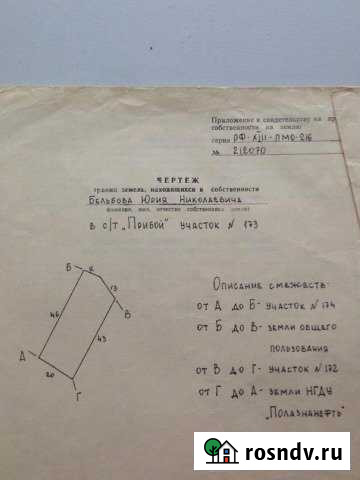 Приложение к свидетельству на пр
собственности на землю
серия РФ-XIII-ПМО-216
№ 212070
ЧЕРТЕЖ
границ земель, находящихся в собственности
Бельбова Юрия Николаевича
фамилия, имя, отчество собственника земли
в с/т "Прибой" участок N 173
Б
8
13
В
46
43
А
20
Г
Описание смежеств:
от А до Б - участок N 174
от Б до В - земли общего
пользования
от В до Г - участок N 172
от Г до А - земли НГДУ
"Полазнанефть"
rosndv.ru